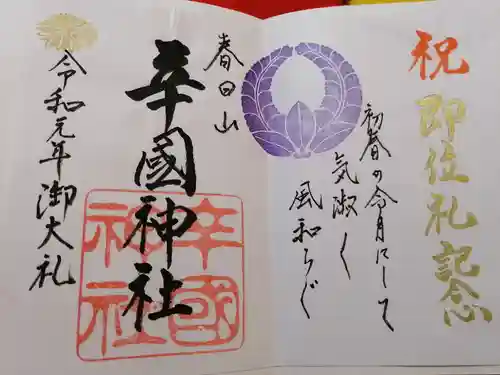 祝
即位礼記念
初春の令月にして
気淑く
風和らぐ
春日山
辛國神社
辛國
神社
令和元年御大礼